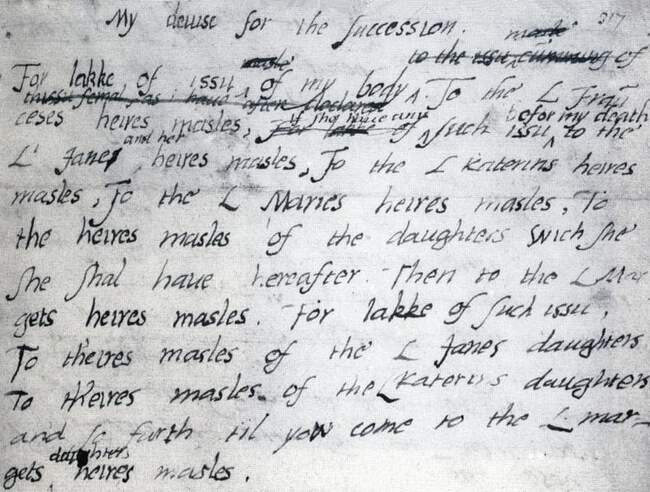 My deuise for the Succession. 317
For lakke of issu masle of my body to the issu cumming of
thissu femal, as i haue after declared. To the L Frau
ceses heires masles, if she haue any such issu befor my death to the
L' Janes and her heires masles, To the L Katerins heires
masles, To the L Maries heires masles, To
the heires masles of the daughters wich she
she shal haue hereafter. Then to the L Mar
gets heires masles. For lakke of such issu,
To theires masles of the L Janes daughters
To theires masles of the L Katerins daughters
and so forth til yow come to the L mar-
gets daughters heires masles.